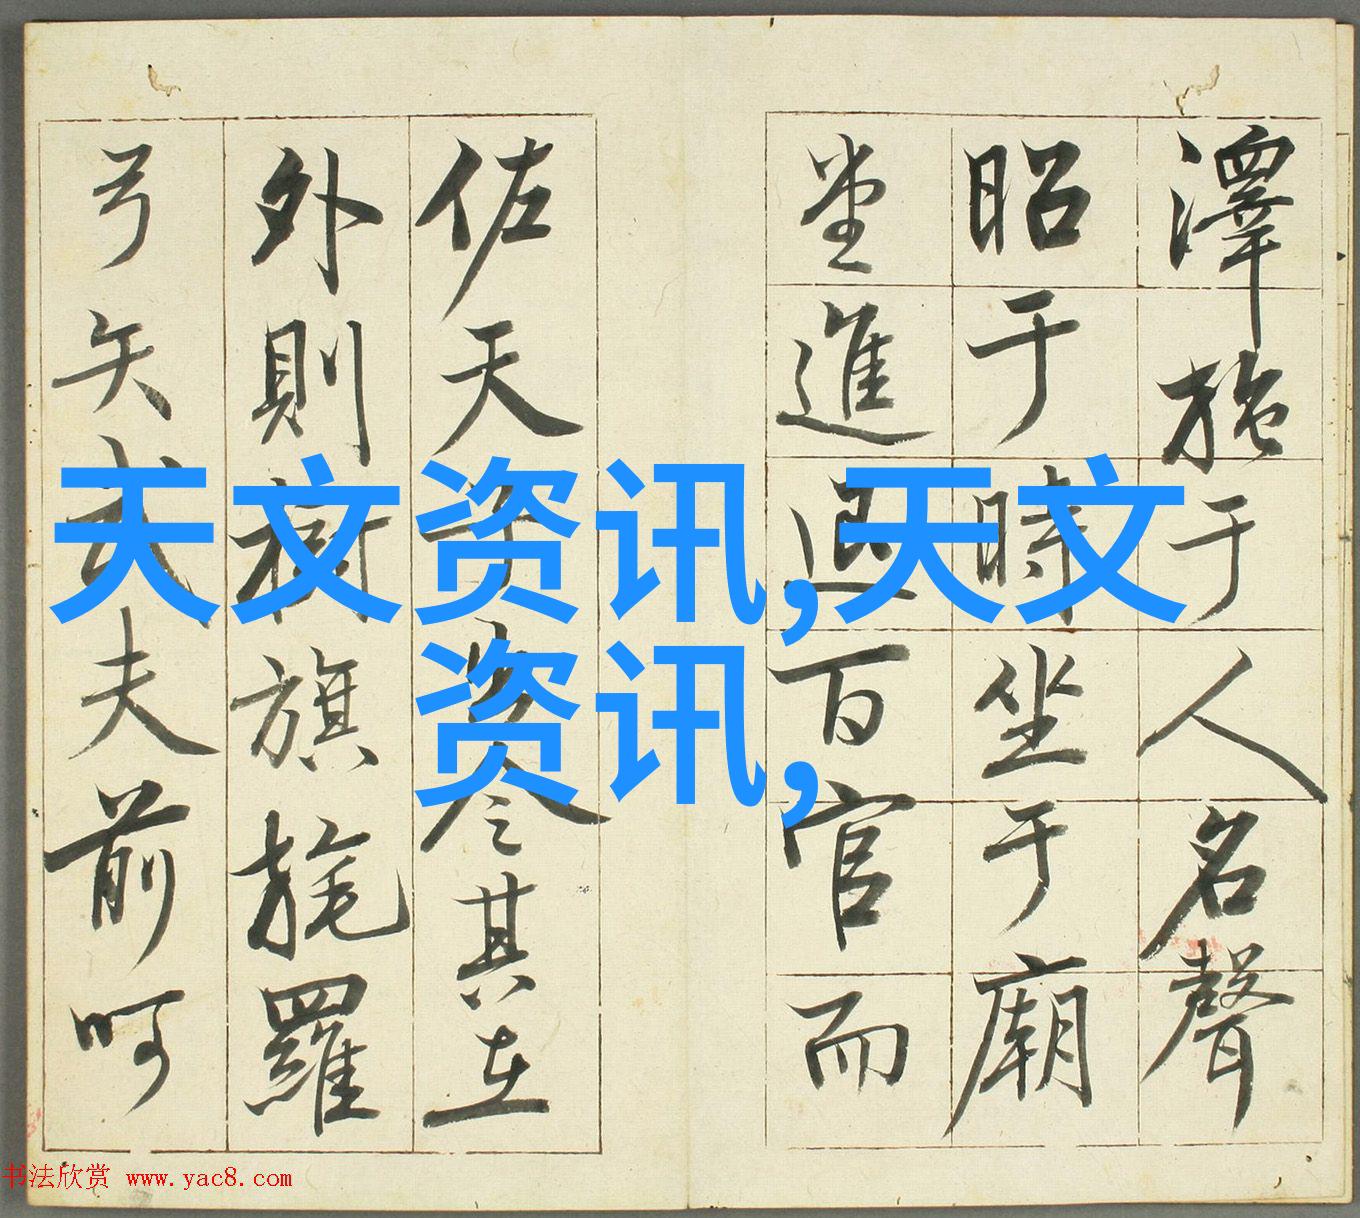 澤施于人名聲
昭于時坐于廟
堂進退百官而
佐天子出令其在
外則樹旗旄羅
弓矢武夫前呵
天文资讯,天文
资讯,
书法欣赏 www.yac8.com